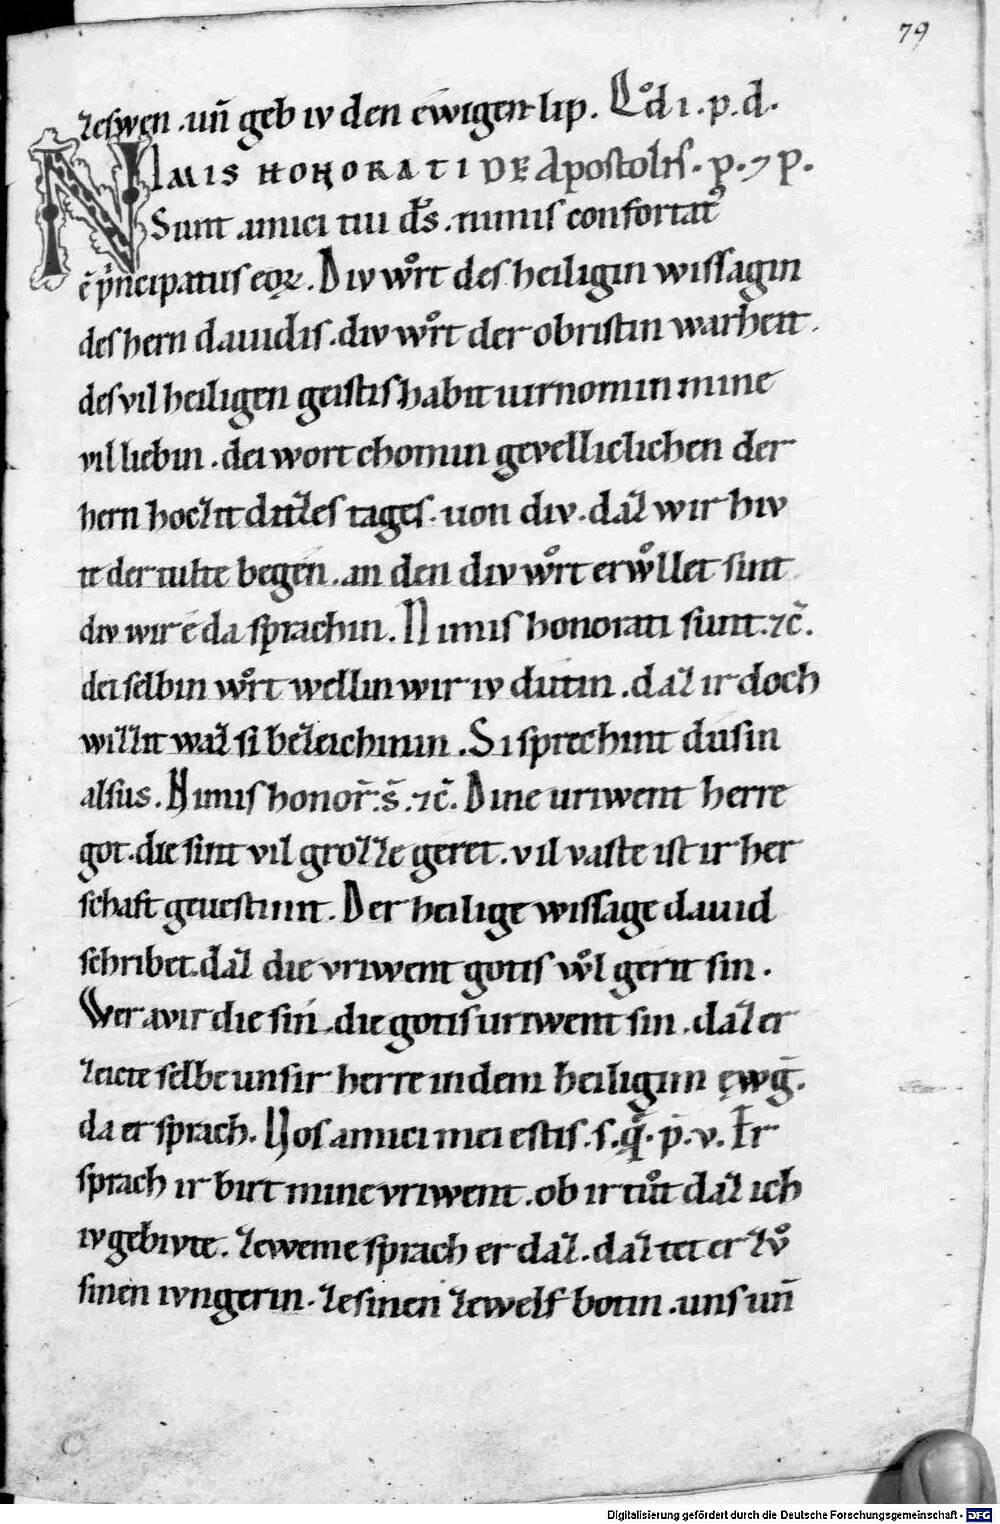 79
zeswen .un̄ geb iv den ewigen lip. Qͦd i . p . d .
NIMIS HONORATI DE Apostolis . p . ⁊ p .
Sunt amici tui ds̄ . nimis confortatꝰ
ē pͥncipatus eoꝝ . Div wͦrt des heiligin wissagin
des hern dauidis . div wͦrt der obristin warheit .
des vil heiligen geistis habit uirnomin mine
vil liebin . dei wort chomin gevelliclichen der
hern hoczit ditzes tages . uon div . daz wir hiv
te der tulte begen . an den div wͦrt erwͦllet sint
div wir e da sprachin . Nimis honorati sunt . ⁊c̄ .
dei selbin wͦrt wellin wir iv dutin . daz ir doch
wizzit waz si bezeichinin . Si sprechint dusin
alsus . Nimis honor̄ . s̄ . ⁊c̄ . Dine uriwent herre
got . die sint vil grozze geret . vil vaste ist ir her
schaft geuestint . Der heilige wissage dauid
schribet . daz die vriwent gotis wͦl gerit sin .
Wer avir die sin . die gotis uriwent sin . daz er
zeicte selbe unsir herre in dem heiligim ęwḡ .
da er sprach . Uos amici mei estis . s . q̄ . p̄ . v . Ir
sprach ir birt mine vriwent . ob ir tuͦt daz ich
iv gebivte . Zeweme sprach er daz . daz tet er zvͦ
sinen ivngerin . ze sinen zewelf botin . uns un̄
Digitalisierung gefördert durch die Deutsche Forschungsgemeinschaft - DFG